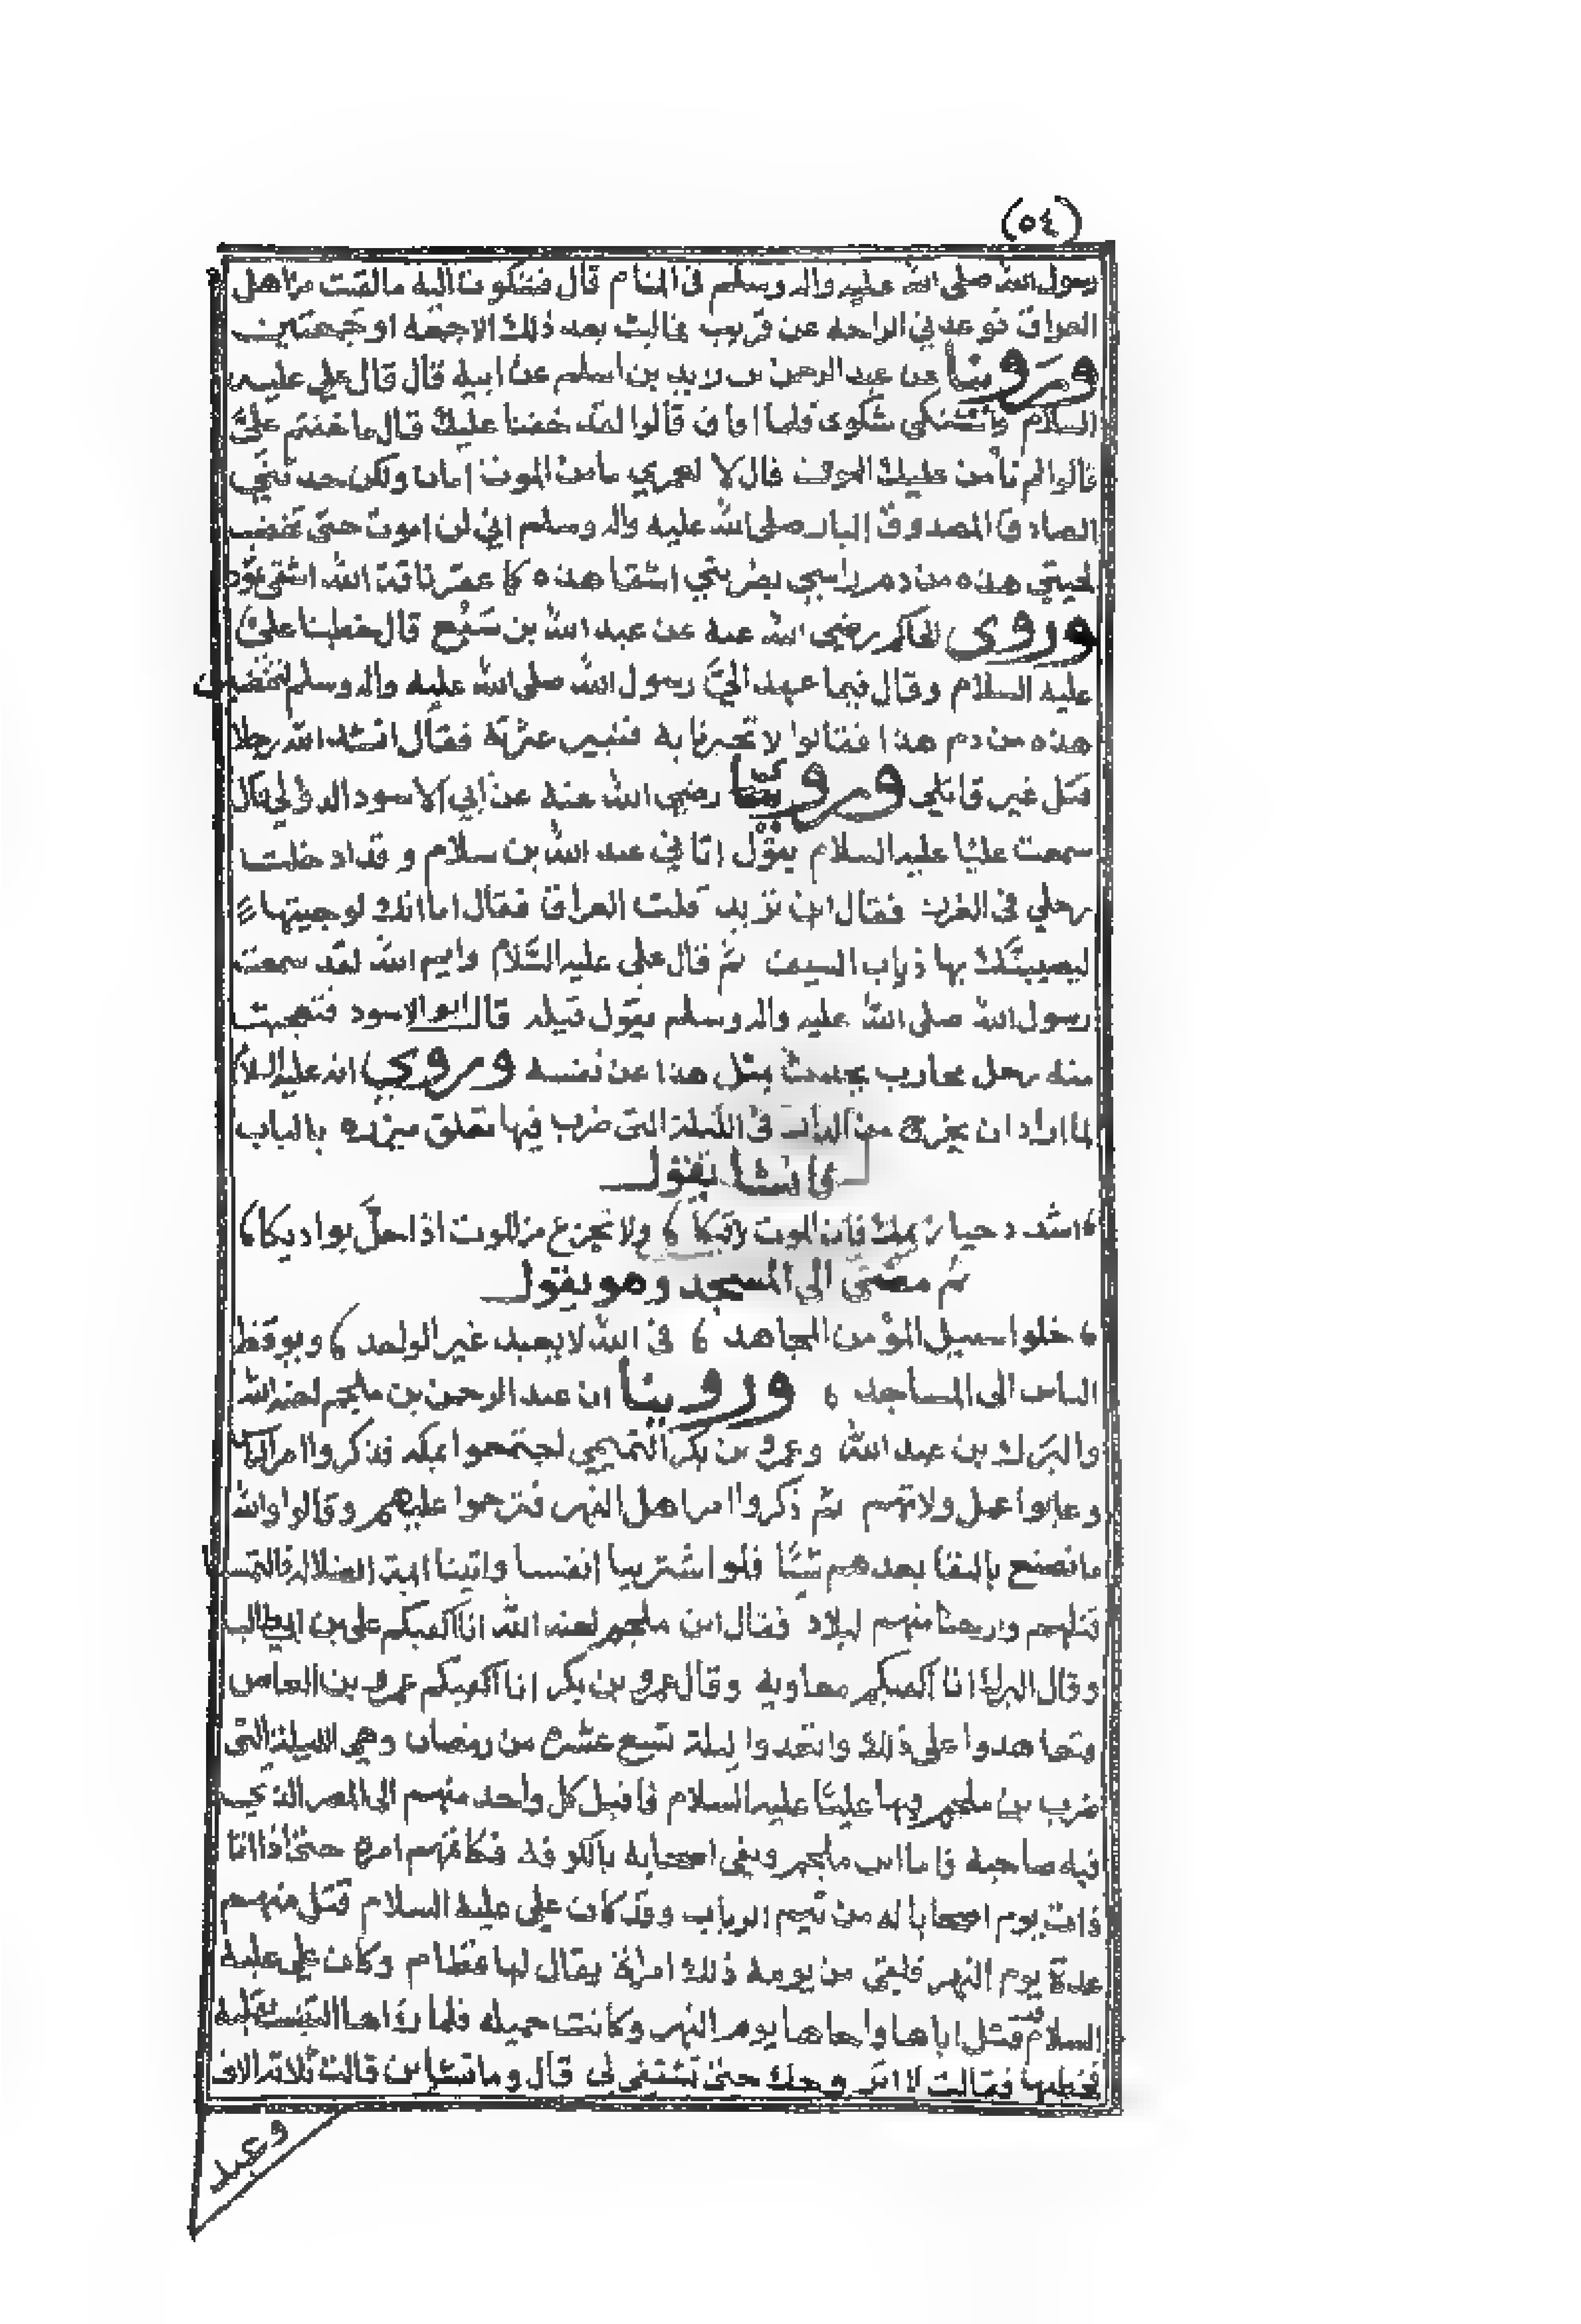 (٥٤)
رسول الله صلى الله عليه واله وسلم في المنام قال فشكوت اليه ما لقيت من اهل
العراق فوعدني الراحة عن قريب فما لبث بعد ذلك الا جمعة او جمعتين
ورَوينا عن عبد الرحمن بن زيد بن اسلم عن ابيه قال قال علي عليه
السلام واشتكى شكوى فلما افاق قالوا لقد خفنا عليك قال ما خفتم عليَّ
قالوا لم نأمن عليك الموت قال لا لعمري ما من الموت امان ولكن حدثني
الصادق المصدوق البار صلى الله عليه واله وسلم اني لن اموت حتى تخضب
لحيتي هذه من دم راسي يضربني اشقاها هذه كما عقر ناقة الله اشقى ثمود
وروى الحاكم رضي الله عنه عن عبد الله بن سَبُع قال خطبنا علي
عليه السلام وقال فيما عهد اليَّ رسول الله صلى الله عليه واله وسلم لتخضبن
هذه من دم هذا فقالوا لا تخبرنا به فنبير عترته فقال انشد الله رجلا
قتل غير قاتلي وروينا رضي الله عنه عن ابي الاسود الدؤلي قال
سمعت عليًا عليه السلام يقول اتاني عبد الله بن سلام وقد ادخلت
رجلي في الغرز فقال اين تريد قلت العراق فقال اما انك لو جيتها
ليصيبنَّك بها ذباب السيف ثم قال علي عليه السَّلام وايم الله لقد سمعت
رسول الله صلى الله عليه واله وسلم يقول قبله قال ابو الاسود فتعجبت
منه رجل محارب يحدث بمثل هذا عن نفسه وروي انه عليه السلا
لما اراد ان يخرج من الباب في الليلة التي ضرب فيها تعلق ميزره بالباب
فانشا يقول
اشدد حيازيمك فان الموت لاقيكا ولا تجزع من الموت اذا حلَّ بواديكا
ثم مضى الى المسجد وهو يقول
خلوا سبيل المؤمن المجاهد في الله لا يعبد غير الواحد ويوقظ
الناس الى المساجد وروينا ان عبد الرحمن بن ملجم لعنه الله
والبرك بن عبد الله وعمرو بن بكر التميمي اجتمعوا بمكه فذكروا امر الناس
وعابوا عمل ولاتهم ثم ذكروا امر اهل النهر فترحموا عليهم وقالوا والله
ما نصنع بالبقا بعدهم شيًا فلو اشترينا انفسنا واتينا ايمة الضلالة فالتمسنا
قتلهم وارحنا منهم البلاد فقال ابن ملجم لعنه الله انا اكفيكم علي بن ابي طالب
وقال البرك انا اكفيكم معاويه وقال عمرو بن بكر انا اكفيكم عمرو بن العاص
وتعاهدوا على ذلك واتعدوا ليلة تسع عشرة من رمضان وهي الليلة التي
ضرب بن ملجم فيها عليًا عليه السلام فاقبل كل واحد منهم الى المصر الذي
فيه صاحبه فاما ابن ملجم ولقي اصحابه بالكوفه فكاتمهم امره حتى اذا اتا
ذات يوم اصحابا له من تيم الرباب وقد كان علي عليه السلام قتل منهم
عدة يوم النهر فلقي من يومه ذلك امراة يقال لها قطام وكان علي عليه
السلام قد قتل اباها واخاها يوم النهر وكانت جميله فلما راها التبست بقلبه
فخطبها فقالت لا اتزوجك حتى تشتفي لي قال وما تشاين قالت ثلاثة الاف
وعبد